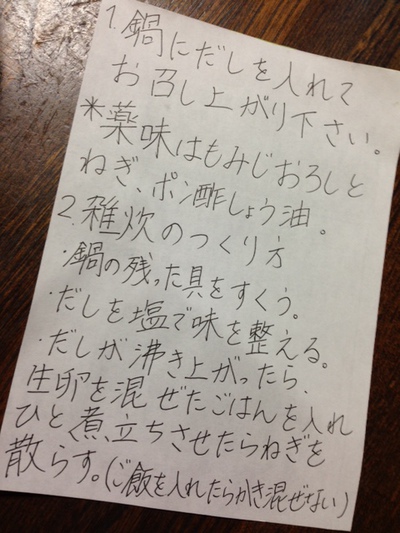 1. 鍋にだしを入れて
お召し上がり下さい。
*薬味はもみじおろしと
ねぎ、ポン酢しょう油。
2. 雑炊のつくり方
・鍋の残った具をすくう。
・だしを塩で味を整える。
・だしが沸き上がったら、
生卵を混ぜたごはんを入れ
ひと煮立ちさせたらねぎを
散らす。(ご飯を入れたらかき混ぜない)